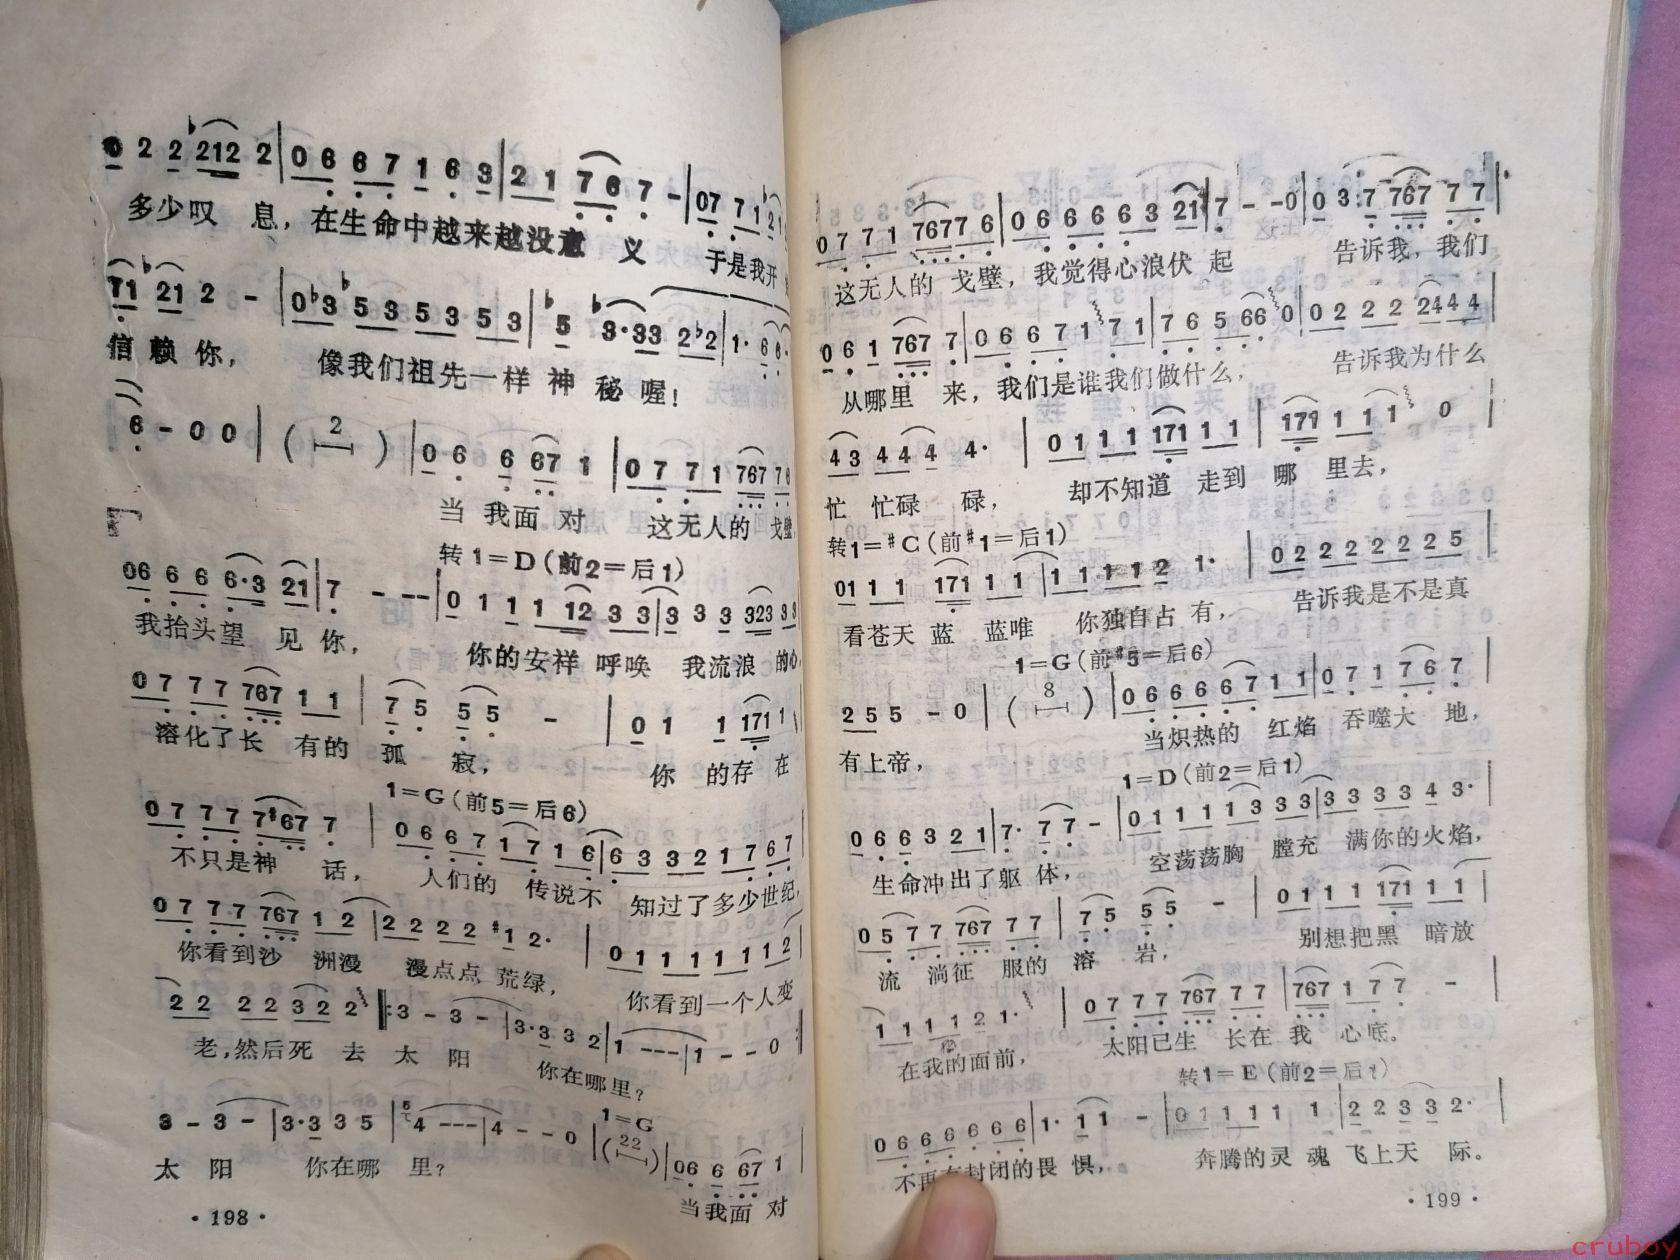 0 2 2 ♭212 2 | 0 6 6 7 1 6 3 | 2 1 7 6 7 - | 07 7 1 ♭2 1
多少叹 息，在生命中越来越没意 义 于是我开
♭71 ♭21 2 - | 0 ♭3 ♭5 3 5 3 5 3 | ♭5 ♭3·33 2♭2 | 1· 6 6·
信 赖 你， 像我们祖先一样 神 秘 喔！
6 - 0 0 | ( 2 ) | 0 6 6 67 1 | 0 7 7 1 767 7 6
当 我面 对 这无人的 戈壁，
转1=D(前2=后1)
06 6 6 6·3 21 | 7 - -- | 0 1 1 1 12 3 3 | 3 3 3 323 3 3
我抬头望 见 你， 你的安祥 呼唤 我流浪 的心，
0 7 7 7 767 1 1 | 7 5 5 5 - | 0 1 1 171 1
溶化了长 有的 孤 寂， 你 的存 在
1=G(前5=后6)
0 7 7 7 7♯67 7 | 0 6 6 7 1 7 1 6 | 6 3 3 2 1 7 6 7
不只是神 话， 人们的 传说不 知过了多少世纪，
0 7 7 7 767 1 2 | 2 2 2 2 ♯1 2· | 0 1 1 1 1 1 1 2
你看到沙 洲漫 漫点点 荒绿， 你看到一个人变
2 2 2 2 3 2 2 ‖: 3 - 3 - | 3·3 3 2 | 1 - - - | 1 - - 0
老，然后死 去 太 阳 你在哪里？
1=G
3 - 3 - | 3·3 3 5 | 4 - - - | 4 - - 0 | (22) | 06 6 67 1
太 阳 你在哪 里？ 当我面 对
·198·
0 7 7 1 7677 6 | 0 6 6 6 6 3 21 | 7 - - 0 | 0 3 7 767 7 7
这无人的 戈壁，我觉得心浪伏 起 告诉我，我们
0 6 1 767 7 | 0 6 6 7 1 7 1 | 7 6 5 66 0 | 0 2 2 2 24 4 4
从哪里 来，我们是谁我们做什么， 告诉我为什么
4 3 4 4 4 4· | 0 1 1 1 171 1 1 | 171 1 1 1 0
忙 忙碌 碌， 却不知道 走到 哪 里去，
转1=♯C(前♯1=后1)
01 1 1 171 1 1 | 1 1 1 1 2 1· | 0 2 2 2 2 2 2 2 5
看苍天 蓝 蓝唯 你独自占 有， 告诉我是不是真
1=G(前♯5=后6)
2 5 5 - 0 | ( 8 ) | 0 6 6 6 6 7 1 1 | 0 7 1 7 6 7
有上帝， 当炽热的 红焰 吞噬大 地，
1=D(前2=后1)
0 6 6 3 2 1 | 7· 7 7 - | 0 1 1 1 1 3 3 3 | 3 3 3 3 4 3·
生命冲出了躯 体， 空荡荡胸 膛充 满你的火焰，
0 5 7 7 767 7 7 | 7 5 5 5 - | 0 1 1 1 171 1 1
流 淌征 服的 溶 岩， 别想把黑 暗放
1 1 1 1 2 1· | 0 7 7 7 767 7 7 | 767 1 7 7 -
在我的面前， 太阳已生 长在 我 心底。
转1=E(前2=后1)
0 6 6 6 6 6 6 | 1· 1 1 - | 0 1 1 1 1 1 | 2 2 3 3 2·
不再 封闭的畏 惧， 奔腾的灵 魂 飞上天 际。
·199·
cruboy